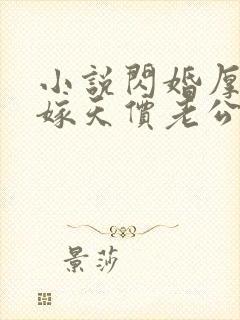 小說閃婚厚
嫁天價老公
景莎